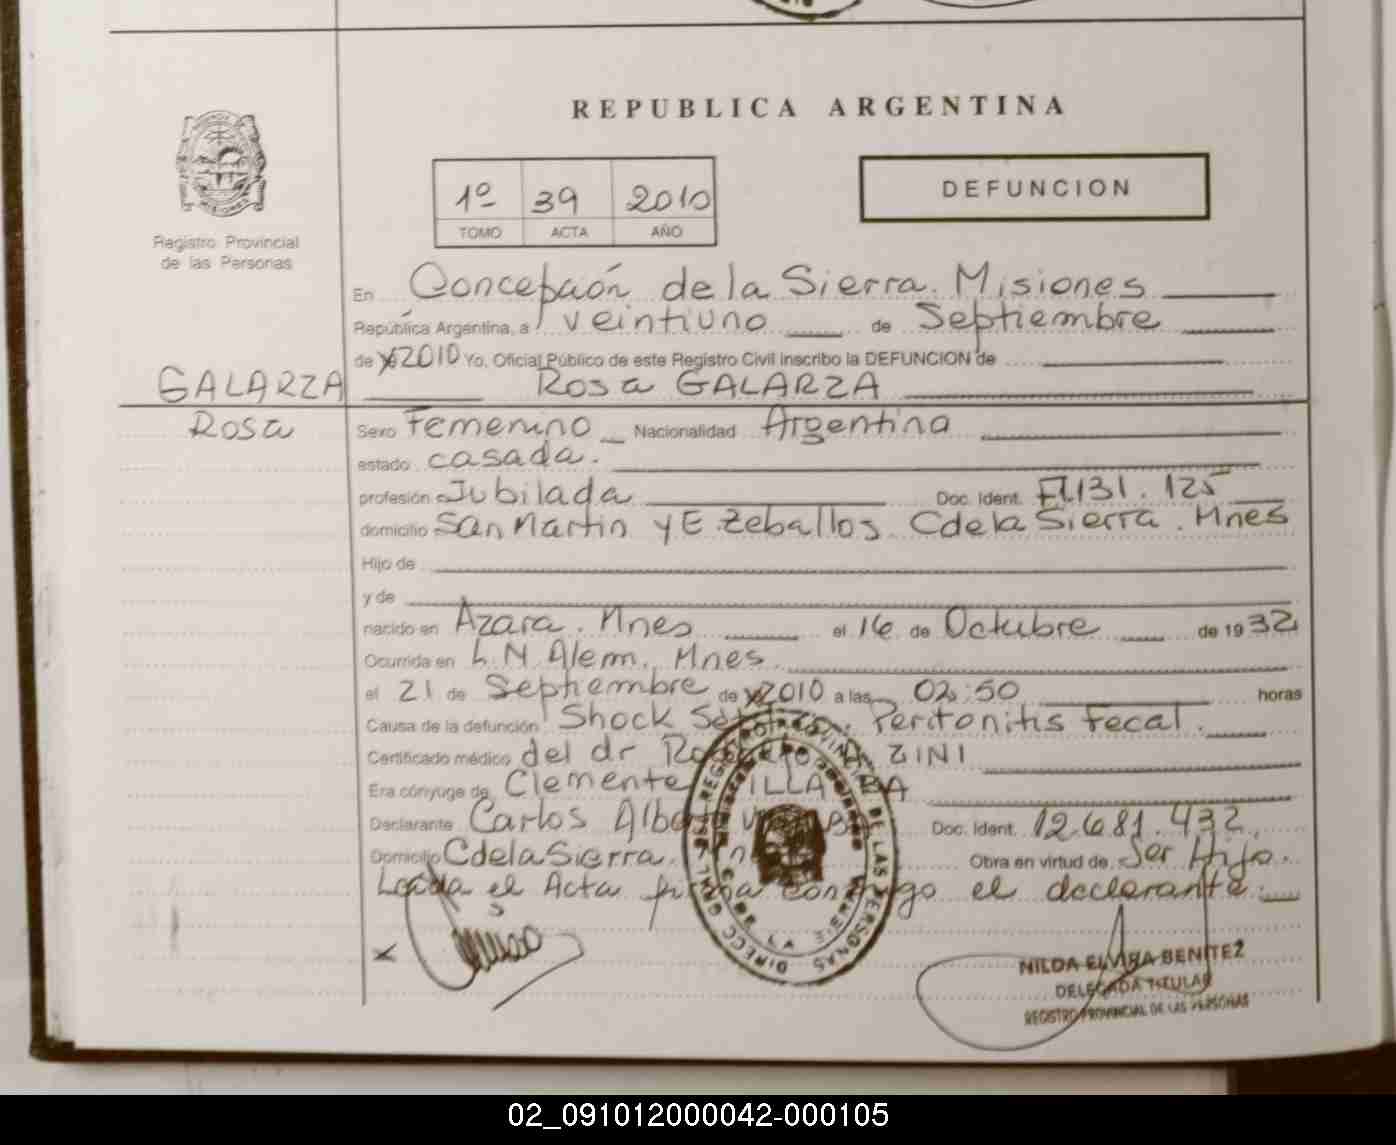 REPUBLICA ARGENTINA
1º 39 2010
TOMO ACTA AÑO
DEFUNCION
Registro Provincial
de las Personas
En Concepción de la Sierra. Misiones
República Argentina, a veintiuno de Septiembre
de 2010 Yo, Oficial Público de este Registro Civil inscribo la DEFUNCION de
GALARZA Rosa GALARZA
Rosa Sexo Femenino Nacionalidad Argentina
estado casada.
profesión Jubilada Doc. Ident. 131.125
domicilio San Martin y E. Zeballos C de la Sierra. Mnes
Hijo de
y de
nacido en Azara. Mnes el 16 de Octubre de 1932
Ocurrida en L. N. Alem. Mnes
el 21 de Septiembre de 2010 a las 02:50 horas
Causa de la defunción Shock Peritonitis Fecal.
Certificado médico del dr ZINI
Era cónyuge de Clemente
Declarante Carlos Doc. Ident. 12.681.432
Domicilio C de la Sierra. Obra en virtud de Ser Hijo.
Leida el Acta firma conmigo el declarante:
X
NILDA ELVIRA BENITEZ
DELEGADA TITULAR
REGISTRO PROVINCIAL DE LAS PERSONAS
02_091012000042-000105